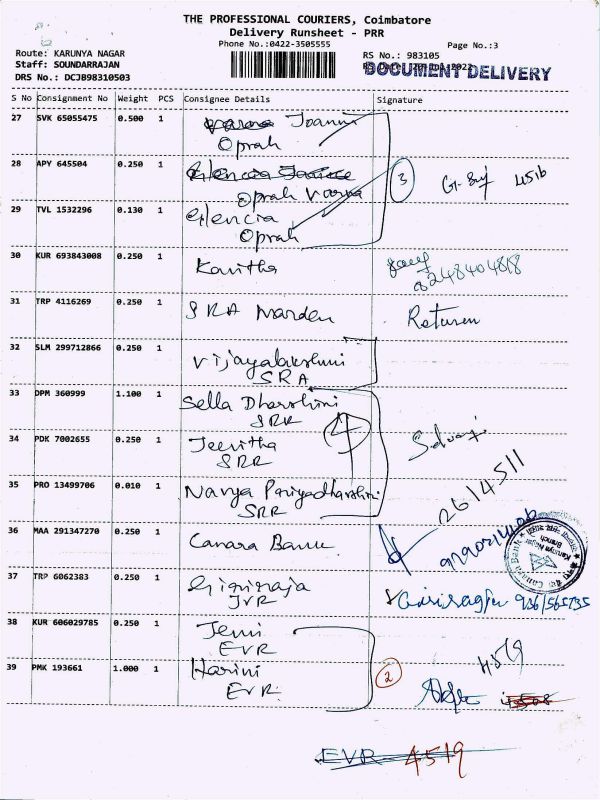 THE PROFESSIONAL COURIERS, Coimbatore
Delivery Runsheet - PRR
Phone No.:0422-3505555
Page No.:3
Route: KARUNYA NAGAR
Staff: SOUNDARRAJAN
DRS No.: DCJB98310503
RS No.: 983105
DOCUMENT DELIVERY
S No Consignment No Weight PCS Consignee Details Signature
27 SVK 65055475 0.500 1 Joanna
Oprah
28 APY 645504 0.250 1
Oprah
3
29 TVL 1532296 0.130 1 Glencia
Oprah
30 KUR 693843008 0.250 1 Kavitha
8248404818
31 TRP 4116269 0.250 1 SRA Warden Return
32 SLM 299712866 0.250 1 Vijayalakshmi
SRA
33 DPM 360999 1.100 1 Sella Dharshini
SRR
4
34 PDK 7002655 0.250 1 Jeevitha Selvaji
SRR
35 PRO 13499706 0.010 1 Navya Pariyadharshini
SRR
2614511
36 MAA 291347270 0.250 1 Canara Bank
Canara Bank
Karunya Nagar
Branch
37 TRP 6062383 0.250 1 Giriraja
JVR
38 KUR 606029785 0.250 1 Jemi
EVR
4519
39 PMK 193661 1.000 1 Harini
EVR
2
EVR 4519